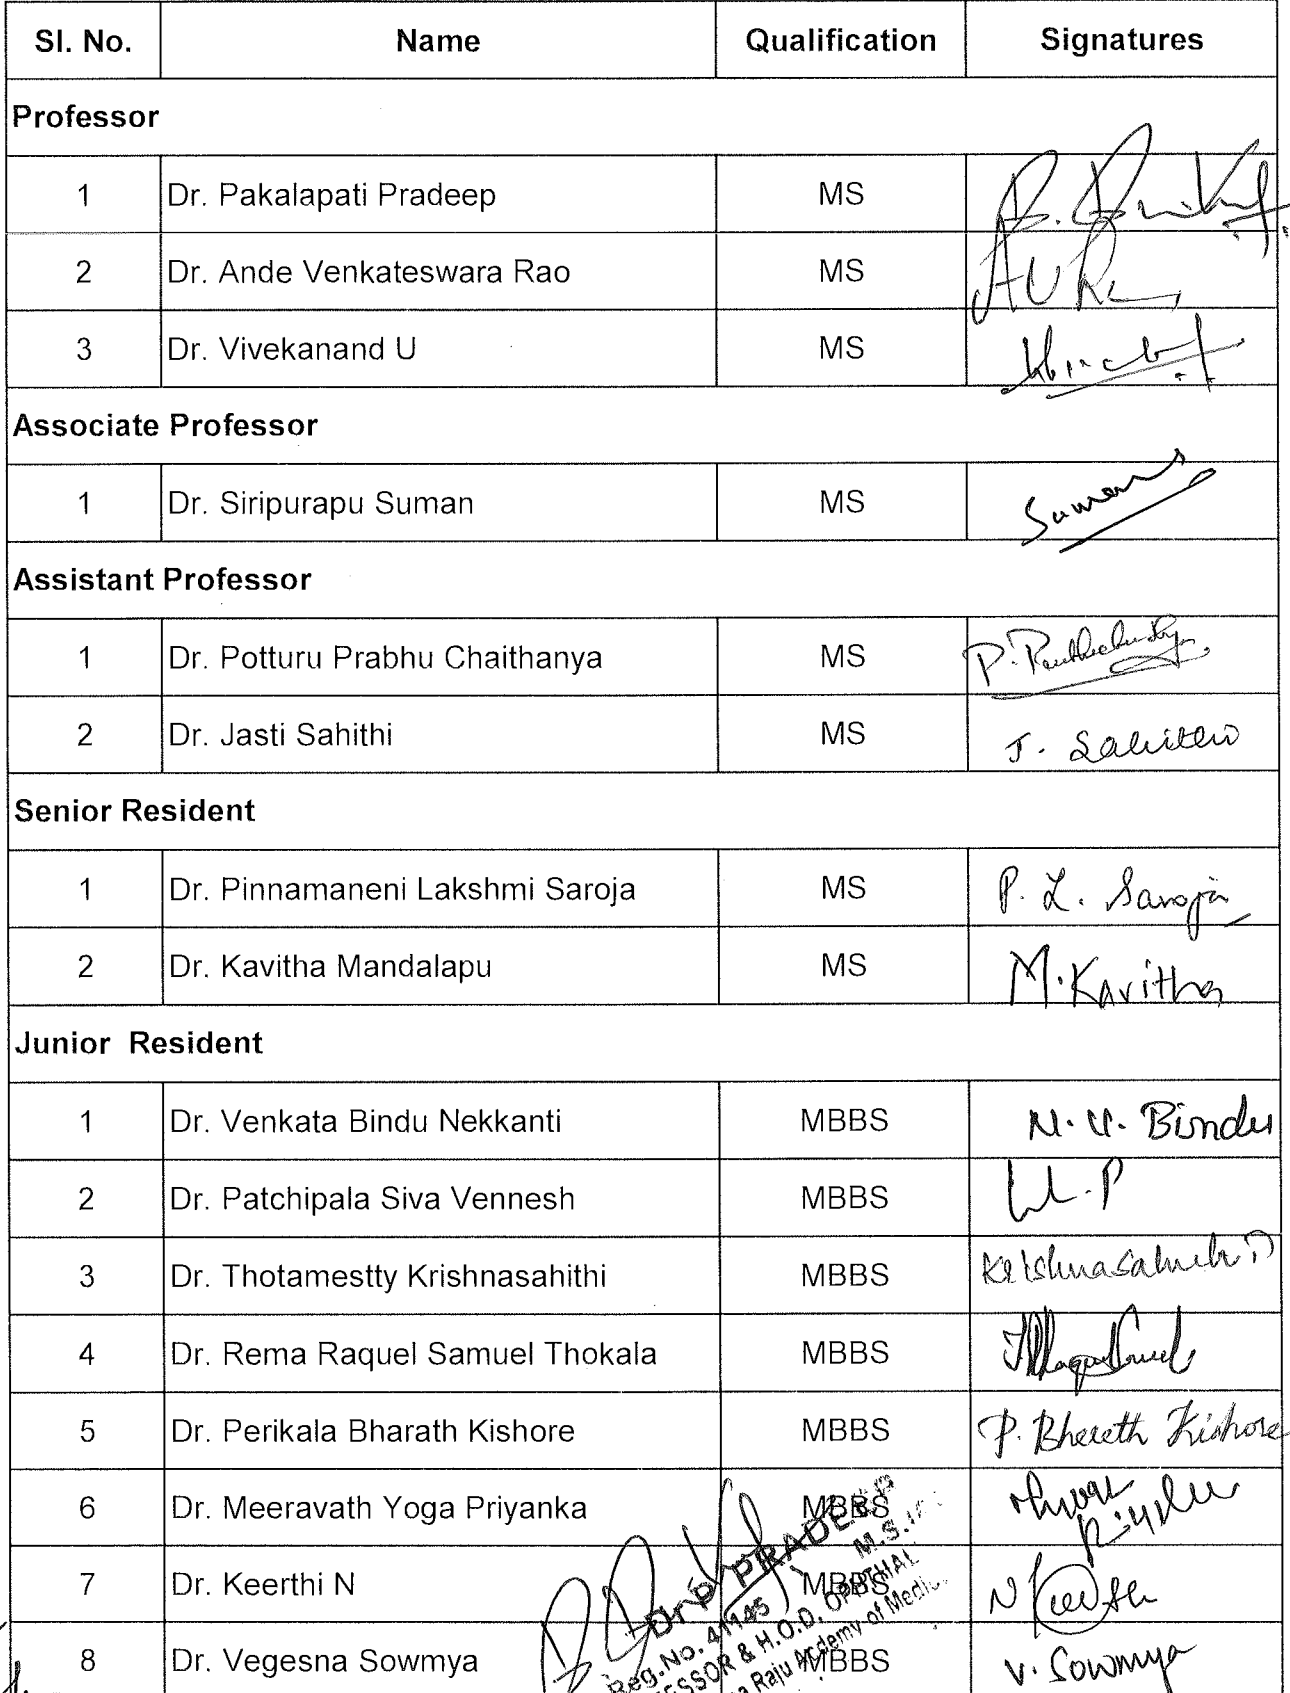 Sl. No. Name Qualification Signatures
Professor
1 Dr. Pakalapati Pradeep MS
2 Dr. Ande Venkateswara Rao MS
3 Dr. Vivekanand U MS
Associate Professor
1 Dr. Siripurapu Suman MS Suman
Assistant Professor
1 Dr. Potturu Prabhu Chaithanya MS
2 Dr. Jasti Sahithi MS J. Sahithi
Senior Resident
1 Dr. Pinnamaneni Lakshmi Saroja MS P. L. Saroja
2 Dr. Kavitha Mandalapu MS M. Kavitha
Junior Resident
1 Dr. Venkata Bindu Nekkanti MBBS N. V. Bindu
2 Dr. Patchipala Siva Vennesh MBBS
3 Dr. Thotamestty Krishnasahithi MBBS Krishnasahithi T
4 Dr. Rema Raquel Samuel Thokala MBBS
5 Dr. Perikala Bharath Kishore MBBS P. Bharath Kishore
6 Dr. Meeravath Yoga Priyanka MBBS
7 Dr. Keerthi N MBBS
8 Dr. Vegesna Sowmya MBBS V. Sowmya
Dr P PRADEEP
M.S.
Reg.No. 41145
& H.O.D.
Raju Acdemy of